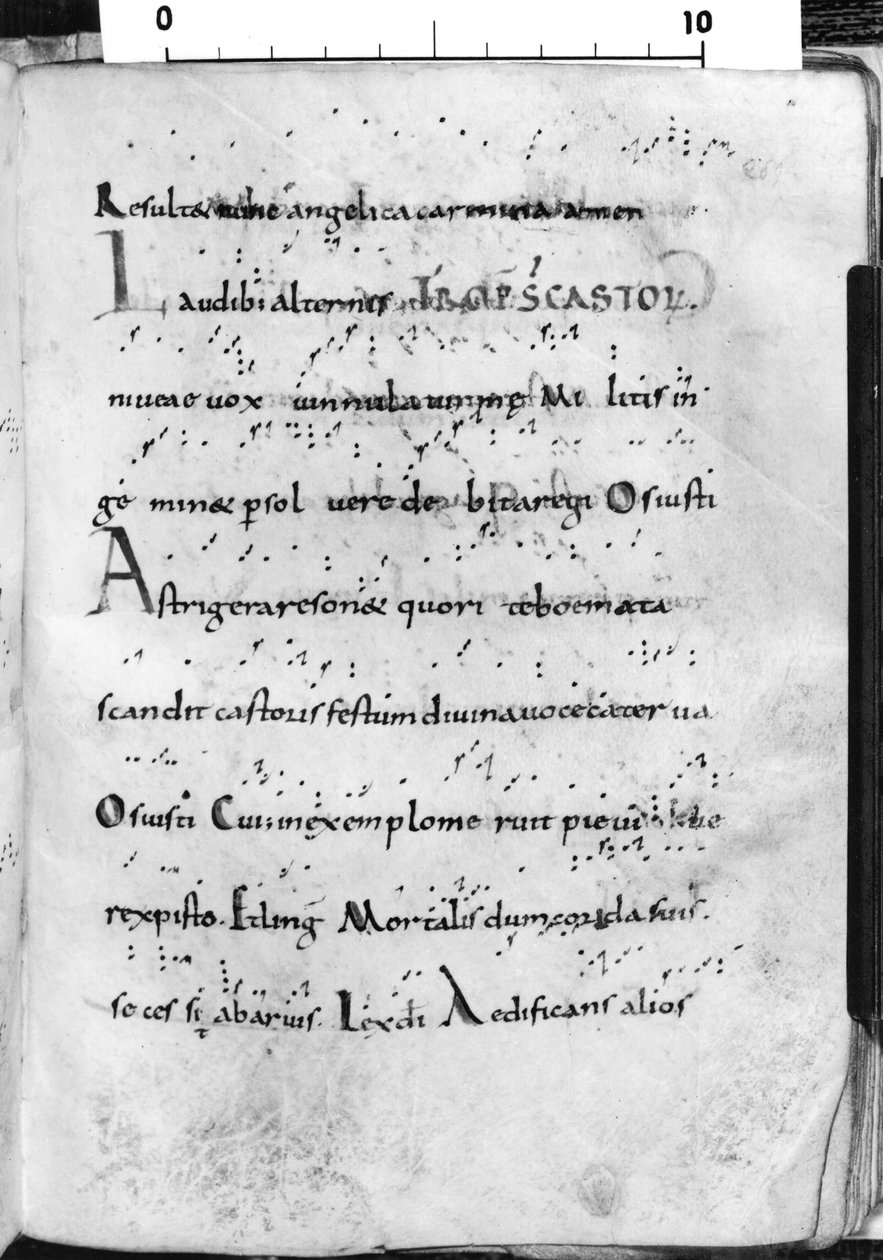 0 10
Result& nunc angelica carmina amen
Laudib; alternis TROP S CASTOR.
niveae vox vinnula turmę Mi litis in
ge min& psol vere de bita regi Os iusti
Astrigera reson& quori te boemata
scandit castoris festum divina voce caterva
Os iusti Cui; in exemplo me ruit pie
rex pisto. Et ling Mortalis dum corda suis.
se ces sit ab arvis. Lex di Aedificans alios